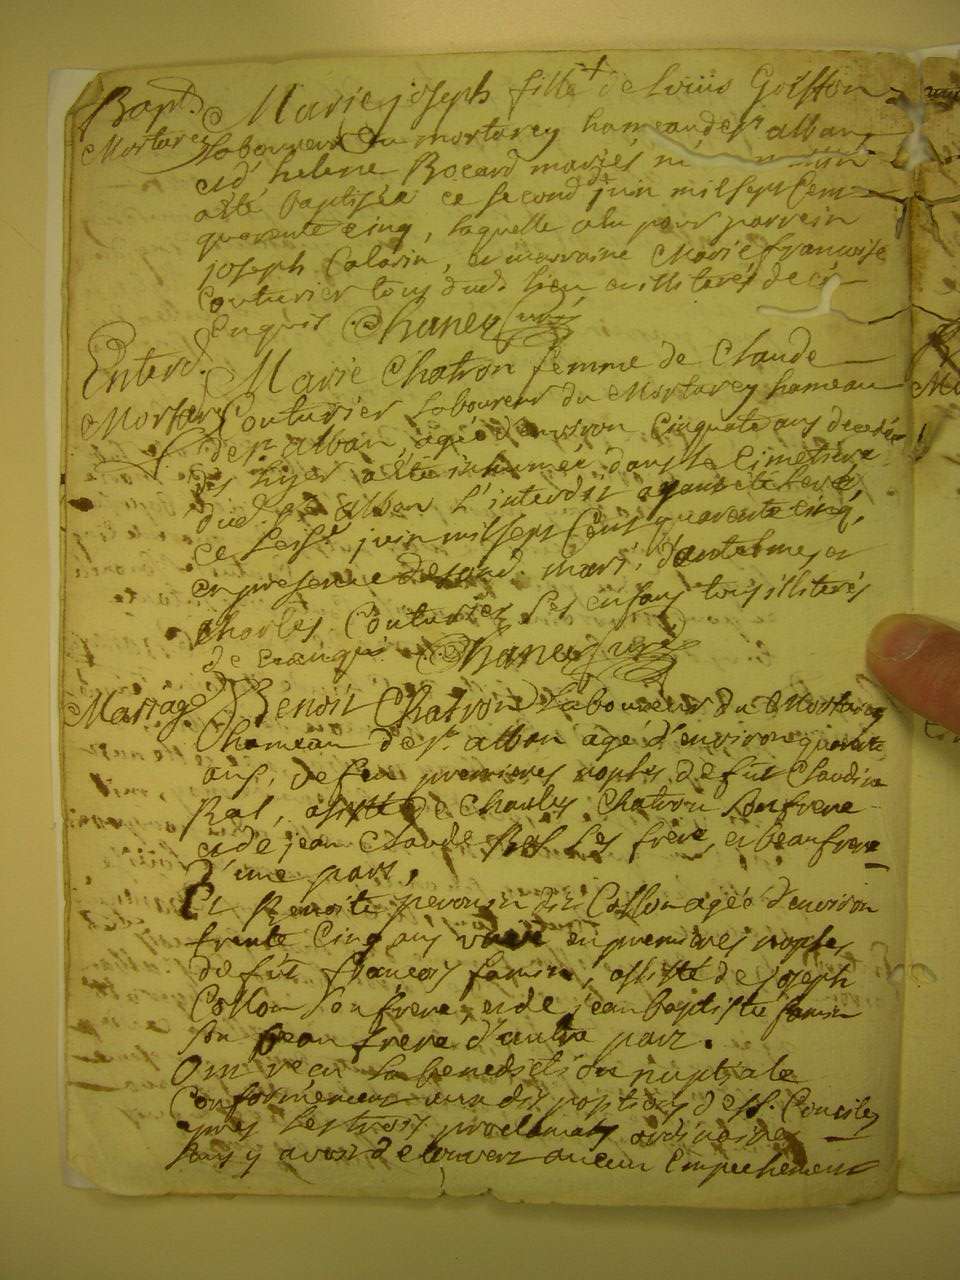 Bapt.
Mortarey
Marie joseph fille de Louis Goiffon
laboureur du mortarey hameau de st alban
et d'helene Bocard mariés né
a eté baptisée ce second juin mil sept Cent
quarente cinq, laquelle a eu pour parrein
joseph Calarin, et marraine Marie francoise
Couturier tous dud. lieu illiterés de ce
Enquis Chanel curé
Enterr.
Mortarey
Marie Chatron femme de Claude
Couturier laboureur du Mortarey hameau
de st. alban, agée d'environ Cinquate ans decedée
dès hyer a eté inhumée dans le Cimetiere
dud. st alban l'interdit ayant eté levé,
ce juin mil sept Cent quarente cinq,
en presence de sond. mari, d'antelme, et
Charles Couturier ses enfans tous illiterés
de ce enquis Chanel curé
Mariage
Benoit Chatron laboureur du Mortarey
hameau de st. alban agé d'environ quarente
ans, vefe en premieres nopces de fût Claudine
Rat, assisté de Charles Chatron son frere
et de jean Claude Rat Ses frére, et beaufrere
D'une part,
Et Benoite peronin dit Collon agée d'environ
trente Cinq ans vueve en premieres nopces
de fût francois famin, assisté de joseph
Collon son frere, et de jean baptiste famin
son beau frere d'autre part.
Ont reçu la benediction nuptiale
Conformement aux dispositions des st. Conciles
apres les trois proclamats ordinaires
sans y avoir decouvert aucun Empechement